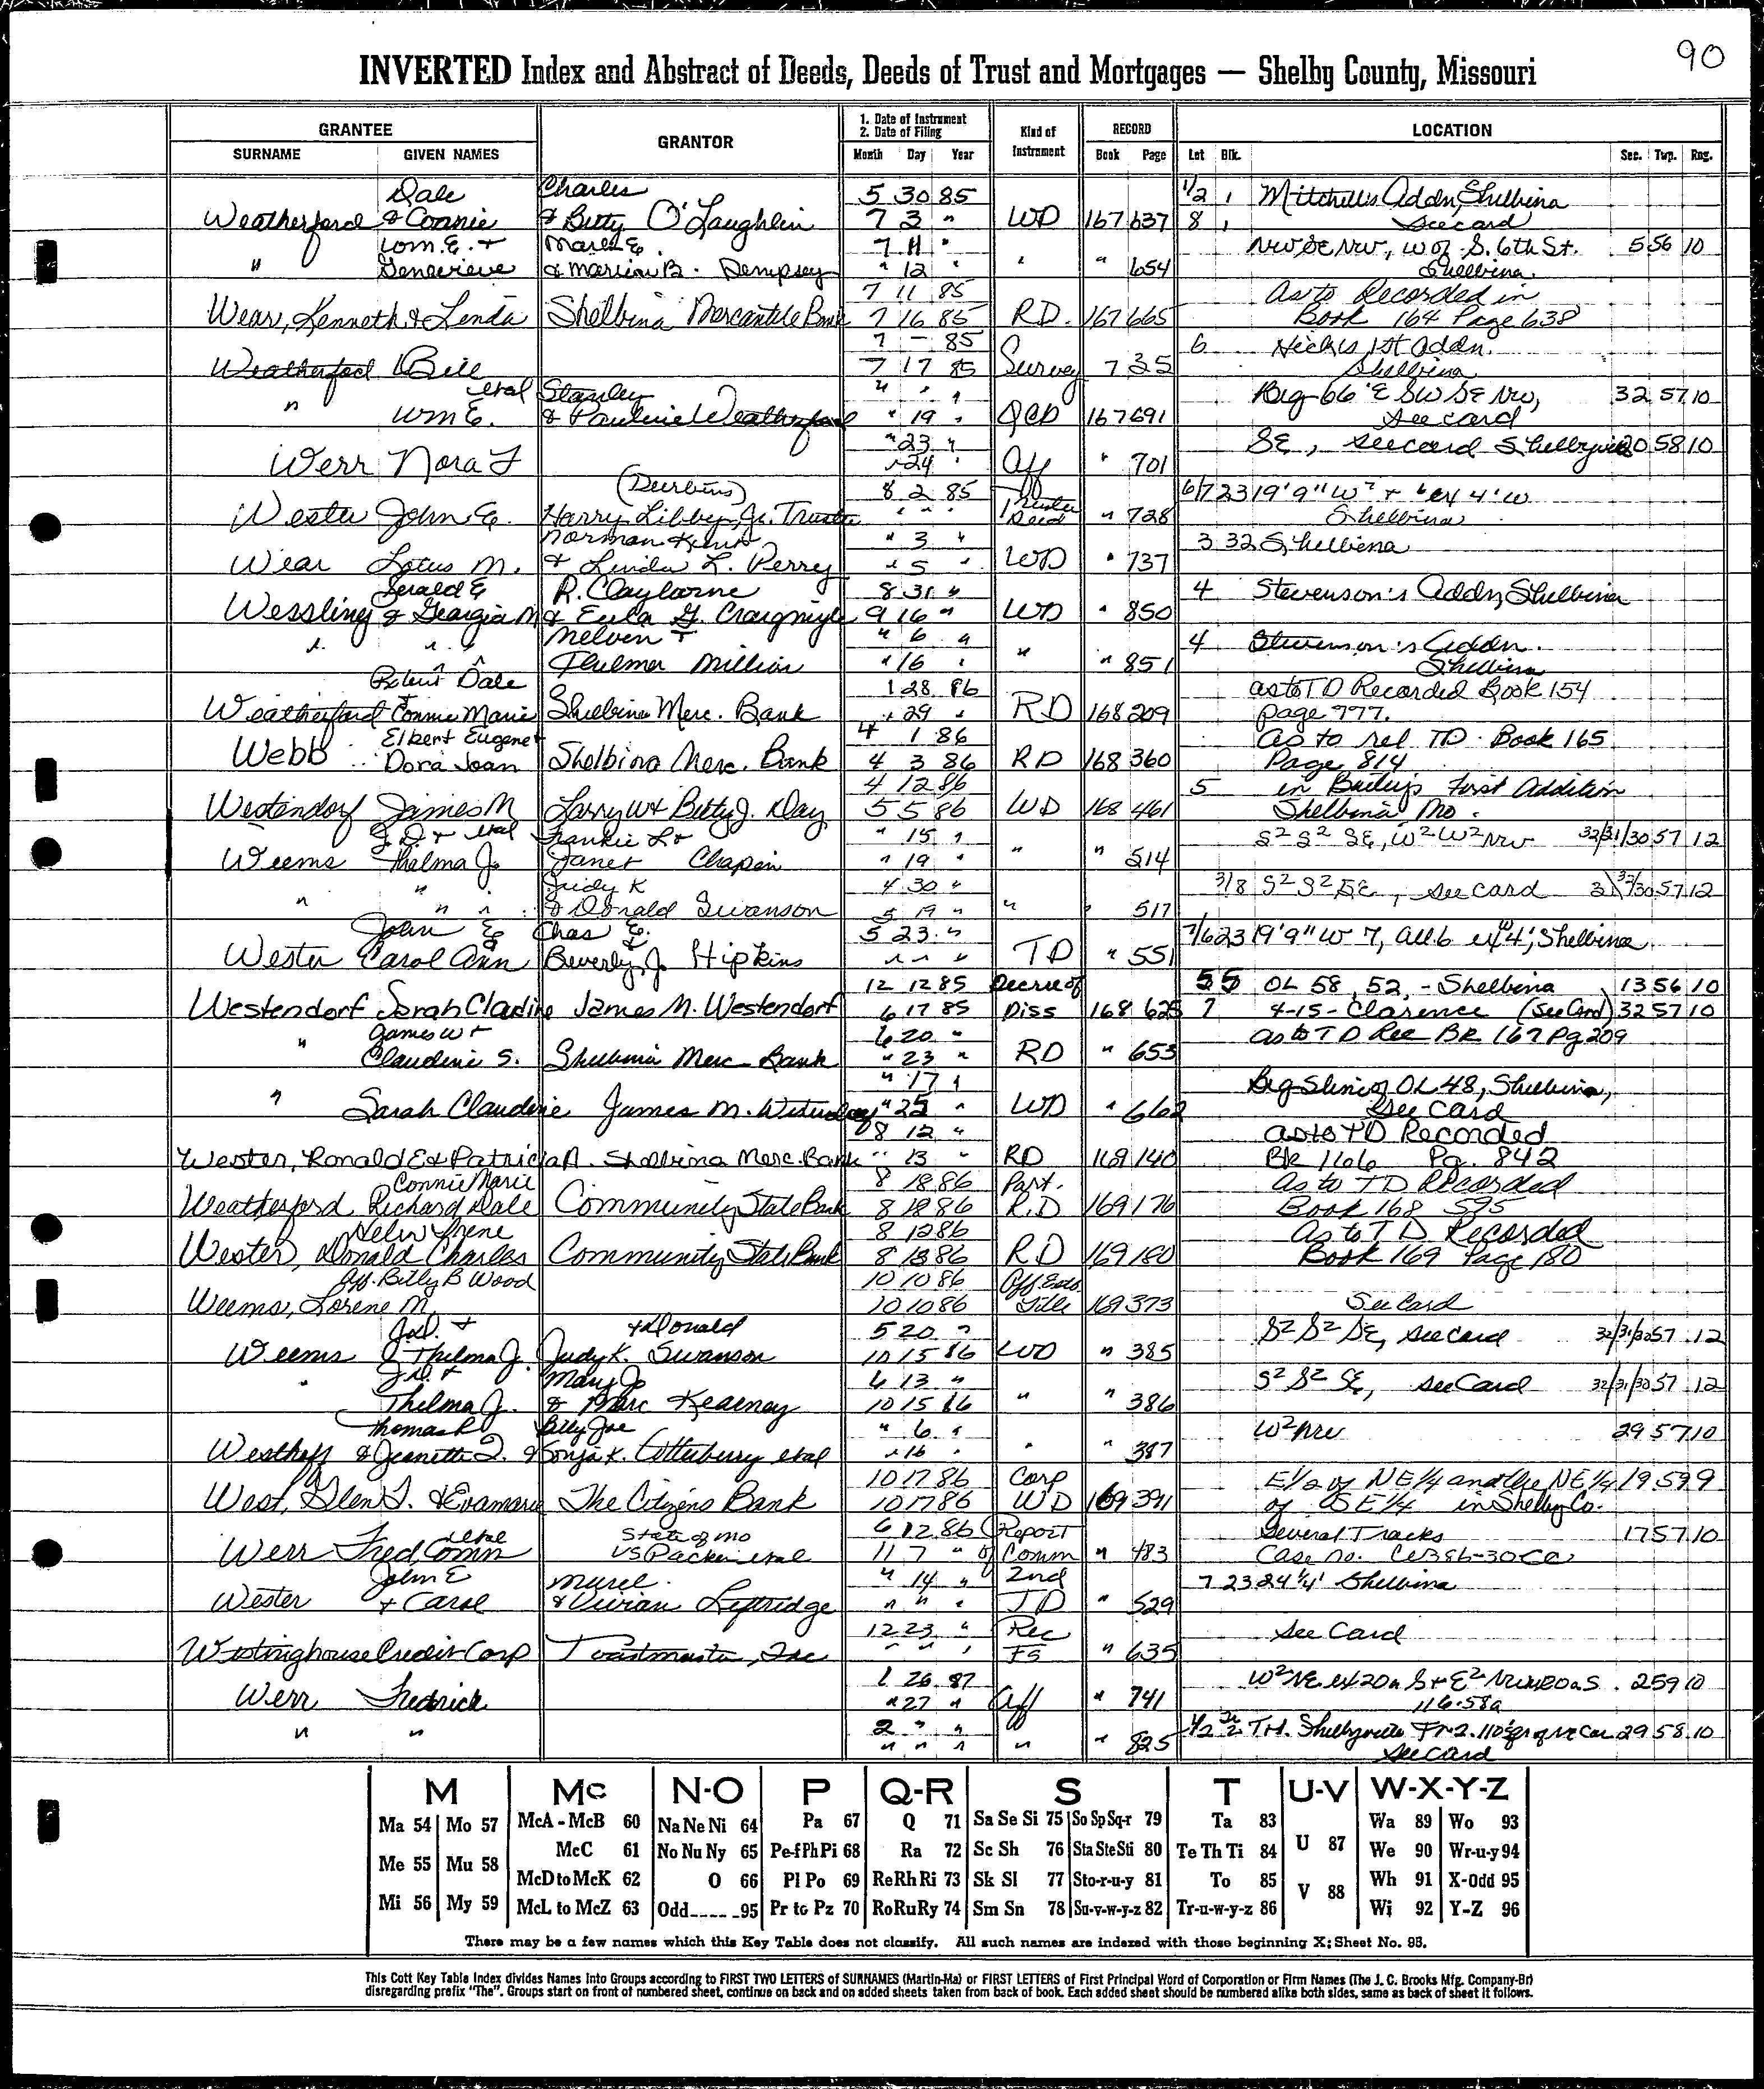 90
INVERTED Index and Abstract of Deeds, Deeds of Trust and Mortgages — Shelby County, Missouri
GRANTEE GRANTOR 1. Date of Instrument 2. Date of Filing Kind of Instrument RECORD LOCATION
SURNAME GIVEN NAMES Month Day Year Book Page Lot Blk. Sec. Twp. Rng.
Dale Charles 5 30 85 1/2 1 Mitchell's Addn, Shelbina
Weatherford & Connie & Betty O'Laughlin 7 3 " WD 167 637 8 1 see card
Wm. E. & 7 11 " NW SE NW, W of S. 6th St. 5 56 10
" Genevieve & Marion B. Dempsey " 12 " " " 654 Shelbina
7 11 85 As to Recorded in
Wear, Kenneth & Linda Shelbina Mercantile Bank 7 16 85 RD. 167 665 Book 164 Page 638
7 - 85 6 1st Addn.
Weatherford Bill 7 17 85 Survey 7 35 Shelbina
etal Stanley " " " Beg 66' E SW SE NW, 32 57 10
" Wm E. & Pauline Weatherford " 19 " QCD 167 691 see card
" 23 " SE, see card Shelbyville 20 58 10
Werr Nora F " 24 " Aff " 701
(Durbins) 8 2 85 6/7 23 19'9" W 7 + 6 ex 4' W
Wester John E. Harry Libby, Jr. Trustee " " " Trustee Deed " 728 Shelbina
Norman " 3 " 3 32 Shelbina
Wear Lotus M. & Linda L. Perry " 5 " WD " 737
Gerald E R. Clayborne 8 31 " 4 Stevenson's Addn, Shelbina
Wessling & Georgia M & Eula G. Craigmyle 9 16 " WD " 850
" " Melven & " 6 " 4 Stevenson's Addn.
Thelma Million " 16 " " " 851 Shelbina
Robert Dale 1 28 86 as to TD Recorded Book 154
Weatherford & Connie Marie Shelbina Merc. Bank " 29 " RD 168 209 page 777.
Elbert Eugene & 4 1 86 as to rel TD Book 165
Webb Dora Joan Shelbina Merc. Bank 4 3 86 RD 168 360 Page 814
4 12 86 5 in Bailey's First Addition
Westendorf James M Larry W & Betty J. Day 5 5 86 WD 168 461 Shelbina Mo.
J.D. & etal Frankie L & " 15 " S2 S2 SE, W2 W2 NW 32/31/30 57 12
Weems Thelma J. Janet Chapin " 19 " " " 514
" Judy K 4 30 " 3/8 S2 S2 SE, see card 31 32/30 57 12
" " " & Donald Swanson 5 19 " " " 517
John E & Chas E. & 5 23 " 7/6 23 19'9" W 7, all 6 ex W 4', Shelbina
Wester Carol Ann Beverly J. Hipkins " " " TD " 551
12 12 85 Decree of 55 OL 58, 52, - Shelbina 13 56 10
Westendorf Sarah Cladine James M. Westendorf 6 17 85 Diss 168 625 7 4-15- Clarence (See Card) 32 57 10
James W & 6 20 " as to TD Rec BK 167 Pg 209
" Claudine S. Shelbina Merc Bank " 23 " RD " 653
" 17 " Beg S line of OL 48, Shelbina,
" Sarah Claudine James M. " 25 " WD " 662 See Card
8 12 " as to TD Recorded
Wester, Ronald E & Patricia A. Shelbina Merc. Bank " 13 " RD 169 140 Bk 166 Pg. 842
Connie Marie 8 18 86 Part. As to TD Recorded
Weatherford Richard Dale Community State Bank 8 18 86 R.D 169 176 Book 168 595
Helen Irene 8 12 86 As to TD Recorded
Wester, Donald Charles Community State Bank 8 18 86 RD 169 180 Book 169 Page 180
Aff. Billy B Wood 10 10 86 Aff Esta
Weems, Lorene M. 10 10 86 Title 169 373 See Card
J.D. & & Donald 5 20 " S2 S2 SE, see card 32/31/30 57 12
Weems Thelma J. Judy K. Swanson 10 15 86 WD " 385
" J.D. & Mary Jo 6 13 " S2 S2 SE, see Card 32/31/30 57 12
Thelma J. & Marc Kearney 10 15 86 " " 386
Thomas R Billy Joe " 6 " W2 NW 29 57 10
Westhoff & Jeanette I. & Sonja K. Cotterberry etal " 16 " " " 387
10 17 86 Corp E1/2 of NE1/4 and the NE1/4 19 59 9
West, Glen T. & Evamarie The Citizens Bank 10 17 86 WD 169 391 of SE1/4 in Shelby Co.
etal State of Mo 6 12 86 Report Several Tracks 17 57 10
Werr Fred Comm VS Packer etal 11 7 " of Comm " 483 Case no.
John E " 14 " 2nd 7 23 24 1/4' Shelbina
Wester & Carol & Vivian Leftridge " " " TD " 529
12 23 " Rec See Card
Westinghouse Credit Corp Toastmaster, Inc " " " FS " 635
1 26 87 W2 NE ex 20a S & E2 NW ex 20a S. 2 59 10
Werr Fredrick " 27 " Aff " 741 116.58a
2 " " 29 58 10
" " " " " " " 825 See card
M Mc N-O P Q-R S T U-V W-X-Y-Z
Ma 54 Mo 57 McA - McB 60 Na Ne Ni 64 Pa 67 Q 71 Sa Se Si 75 So Sp Sq-r 79 Ta 83 Wa 89 Wo 93
Me 55 Mu 58 McC 61 No Nu Ny 65 Pe-f Ph Pi 68 Ra 72 Sc Sh 76 Sta Ste Sti 80 Te Th Ti 84 U 87 We 90 Wr-u-y 94
McD to McK 62 O 66 Pl Po 69 Re Rh Ri 73 Sk Sl 77 Sto-r-u-y 81 To 85 V 88 Wh 91 X-Odd 95
Mi 56 My 59 McL to McZ 63 Odd_____95 Pr to Pz 70 Ro Ru Ry 74 Sm Sn 78 Su-v-w-y-z 82 Tr-u-w-y-z 86 Wi 92 Y-Z 96
There may be a few names which this Key Table does not classify. All such names are indexed with those beginning X; Sheet No. 95.
This Cott Key Table Index divides Names Into Groups according to FIRST TWO LETTERS of SURNAMES (Martin-Ma) or FIRST LETTERS of First Principal Word of Corporation or Firm Names (The J. C. Brooks Mfg. Company-Br)
disregarding prefix "The". Groups start on front of numbered sheet, continue on back and on added sheets taken from back of book. Each added sheet should be numbered alike both sides, same as back of sheet it follows.